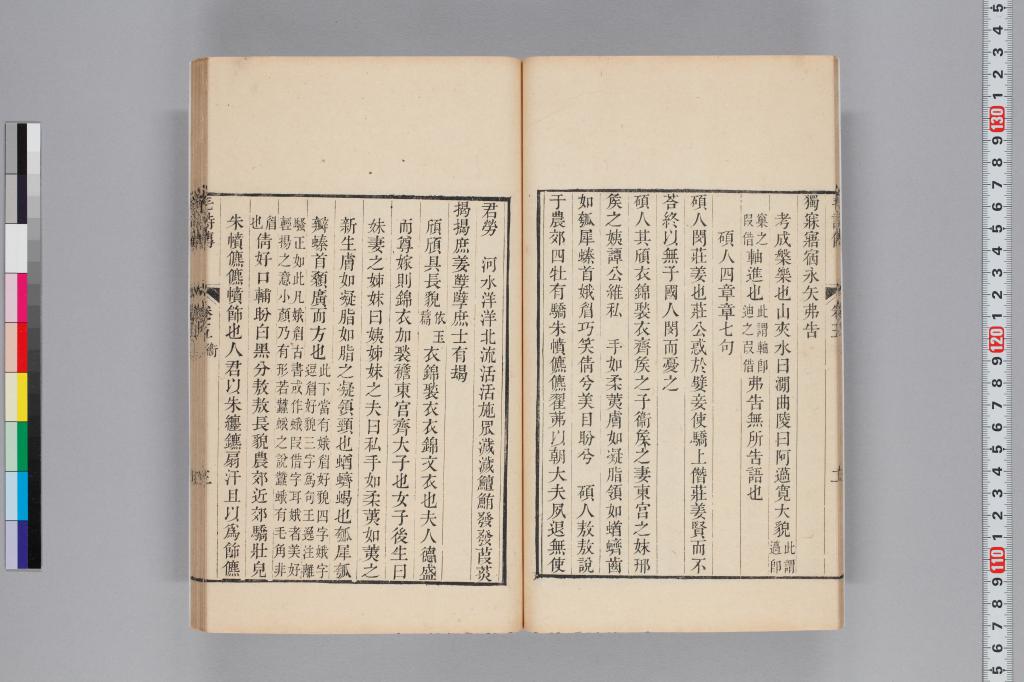 獨寐寤宿永矢弗告
考成槃樂也山夾水曰澗曲陵曰阿薖寬大貌此謂薖卽
窠之叚借軸進也此謂軸卽迪之叚借弗告無所告語也
碩人四章章七句
碩人閔莊姜也莊公惑於嬖妾使驕上僭莊姜賢而不
荅終以無子國人閔而憂之
碩人其頎衣錦褧衣齊矦之子衞矦之妻東宮之妹邢
矦之姨譚公維私 手如柔荑膚如凝脂領如蝤蠐齒
如瓠犀螓首娥眉巧笑倩兮美目盼兮 碩人敖敖說
于農郊四牡有驕朱幩儦儦翟茀以朝大夫夙退無使
君勞 河水洋洋北流活活施罛濊濊鱣鮪發發葭菼
揭揭庶姜孽孽庶士有朅
頎頎具長貌依玉篇衣錦褧衣衣錦文衣也夫人德盛
而尊嫁則錦衣加褧襜東宮齊大子也女子後生曰
妹妻之姊妹曰姨姊妹之夫曰私手如柔荑如荑之
新生膚如凝脂如脂之凝領頸也蝤蠐蝎也瓠犀瓠
瓣螓首顙廣而方也此下當有娥眉好貌四字娥字逗眉好貌三字爲句王逸注離
騷正如此凡娥眉古書或作蛾叚借字耳娥者美好
輕揚之意小顏乃有形若蠶蛾之說蠶蛾有毛角非
眉也倩好口輔盼白黑分敖敖長貌農郊近郊驕壯皃
朱幩儦儦幩飾也人君以朱纏鑣扇汗且以爲飾儦
毛詩傳
卷五
衞